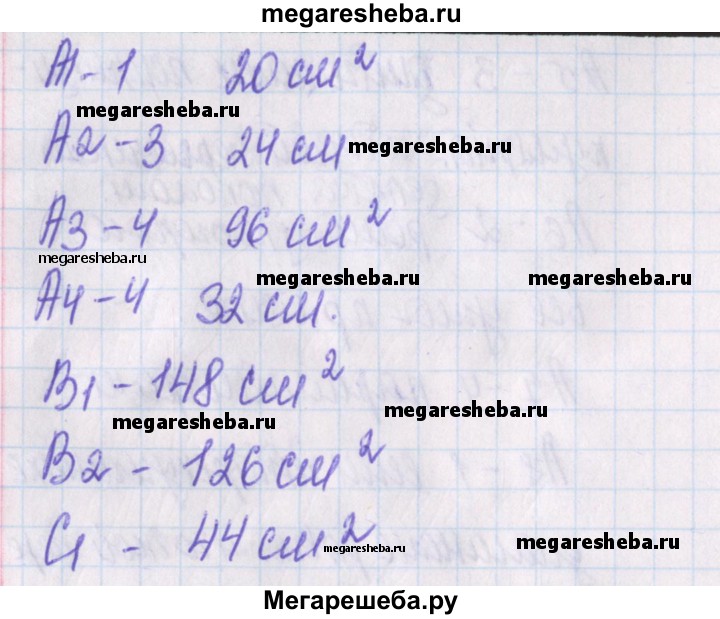 megaresheba.ru
А1 - 1 20 см²
megaresheba.ru
А2 - 3 24 см
megaresheba.ru
megaresheba.ru
А3 - 4 96 см²
megaresheba.ru
megaresheba.ru
megaresheba.ru
А4 - 4 32 см.
В1 - 148 см²
megaresheba.ru
megaresheba.ru
В2 - 126 см²
С1 - 44 см²
megaresheba.ru
megaresheba.ru
Мегарешеба.ру